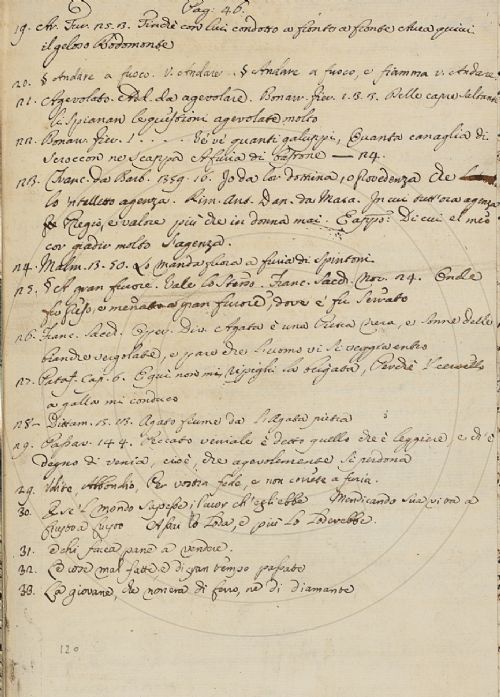 6 Pag. 46.
19. Ar. Fur. 25. 13. Finchè con lui condotto a fronte a fronte
il geloso Rodomonte
20. § Andare a fuoco. V. Andare. § Andare a fuoco, e fiamma v. Andare.
21. Agevolato. Add. da agevolare. Bonar. Fier. 1. 3. 5. Delle
Si spianan le quistioni agevolate molto
22. Bonar. Fier. 1. Ve' ve' quanti galuppi, Quanta canaglia di
ne scappa A furia di bastone — 24.
23. Franc. da Barb. 359. 16. Io da lor dottrina, e provedenza Che
lo 'ntelletto agenza. Rim. Ant. Dan. da Maia. In cui tutt'ora agenza
Pregio, e valore più che in donna mai. E appo: Di cui el meo
cor gradir molto s'agenza.
24. Malm. 13. 50. Lo manda a furia di spintoni.
25. § A gran furore. Vale lo stesso. Franc. Sacch. Nov. 24. Onde
fu preso, e menato a gran furore, dove e' fu serrato
26. Franc. Sacch. Oper. Div. Agata è una pietra nera, e sonne delle
bianche vergolate, e pare che fieuomo vi si verghi entro
27. Pataf. Cap. 6. E qui non mi ripigli la brigata, Perchè l' cervello
a galla mi conduco
28— Dittam. 15. Agato fiume da l'Agata pietra
29. Passav. 144. Peccato veniale è detto quello che è leggiere, e di è
degno di venia, cioè, che agevolemente si perdona
29. Udite, Abbondio, Per vostra fede, e non correte a furia.
30. E se 'l mondo sapesse il cuor ch'egli ebbe Mendicando sua vita a
frusto a frusto Assai lo loda, e più lo loderebbe.
31. Chi facea pane a vendere.
32. Le cose mal fatte, e di gran tempo passate
33. La giovane, che non era di ferro, nè di diamante
120